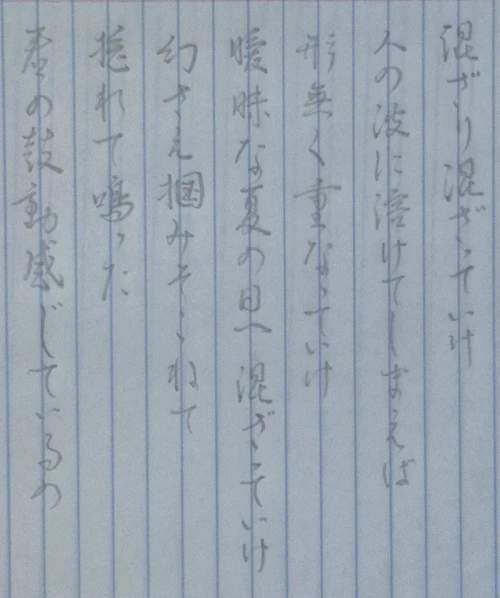 混ざり混ざっていけ
人の波に溶けてしまえば
形無く重なっていけ
曖昧な夏の日へ混ざっていけ
幻さえ掴みそこねて
捻れて鳴った
虚の鼓動感じているの